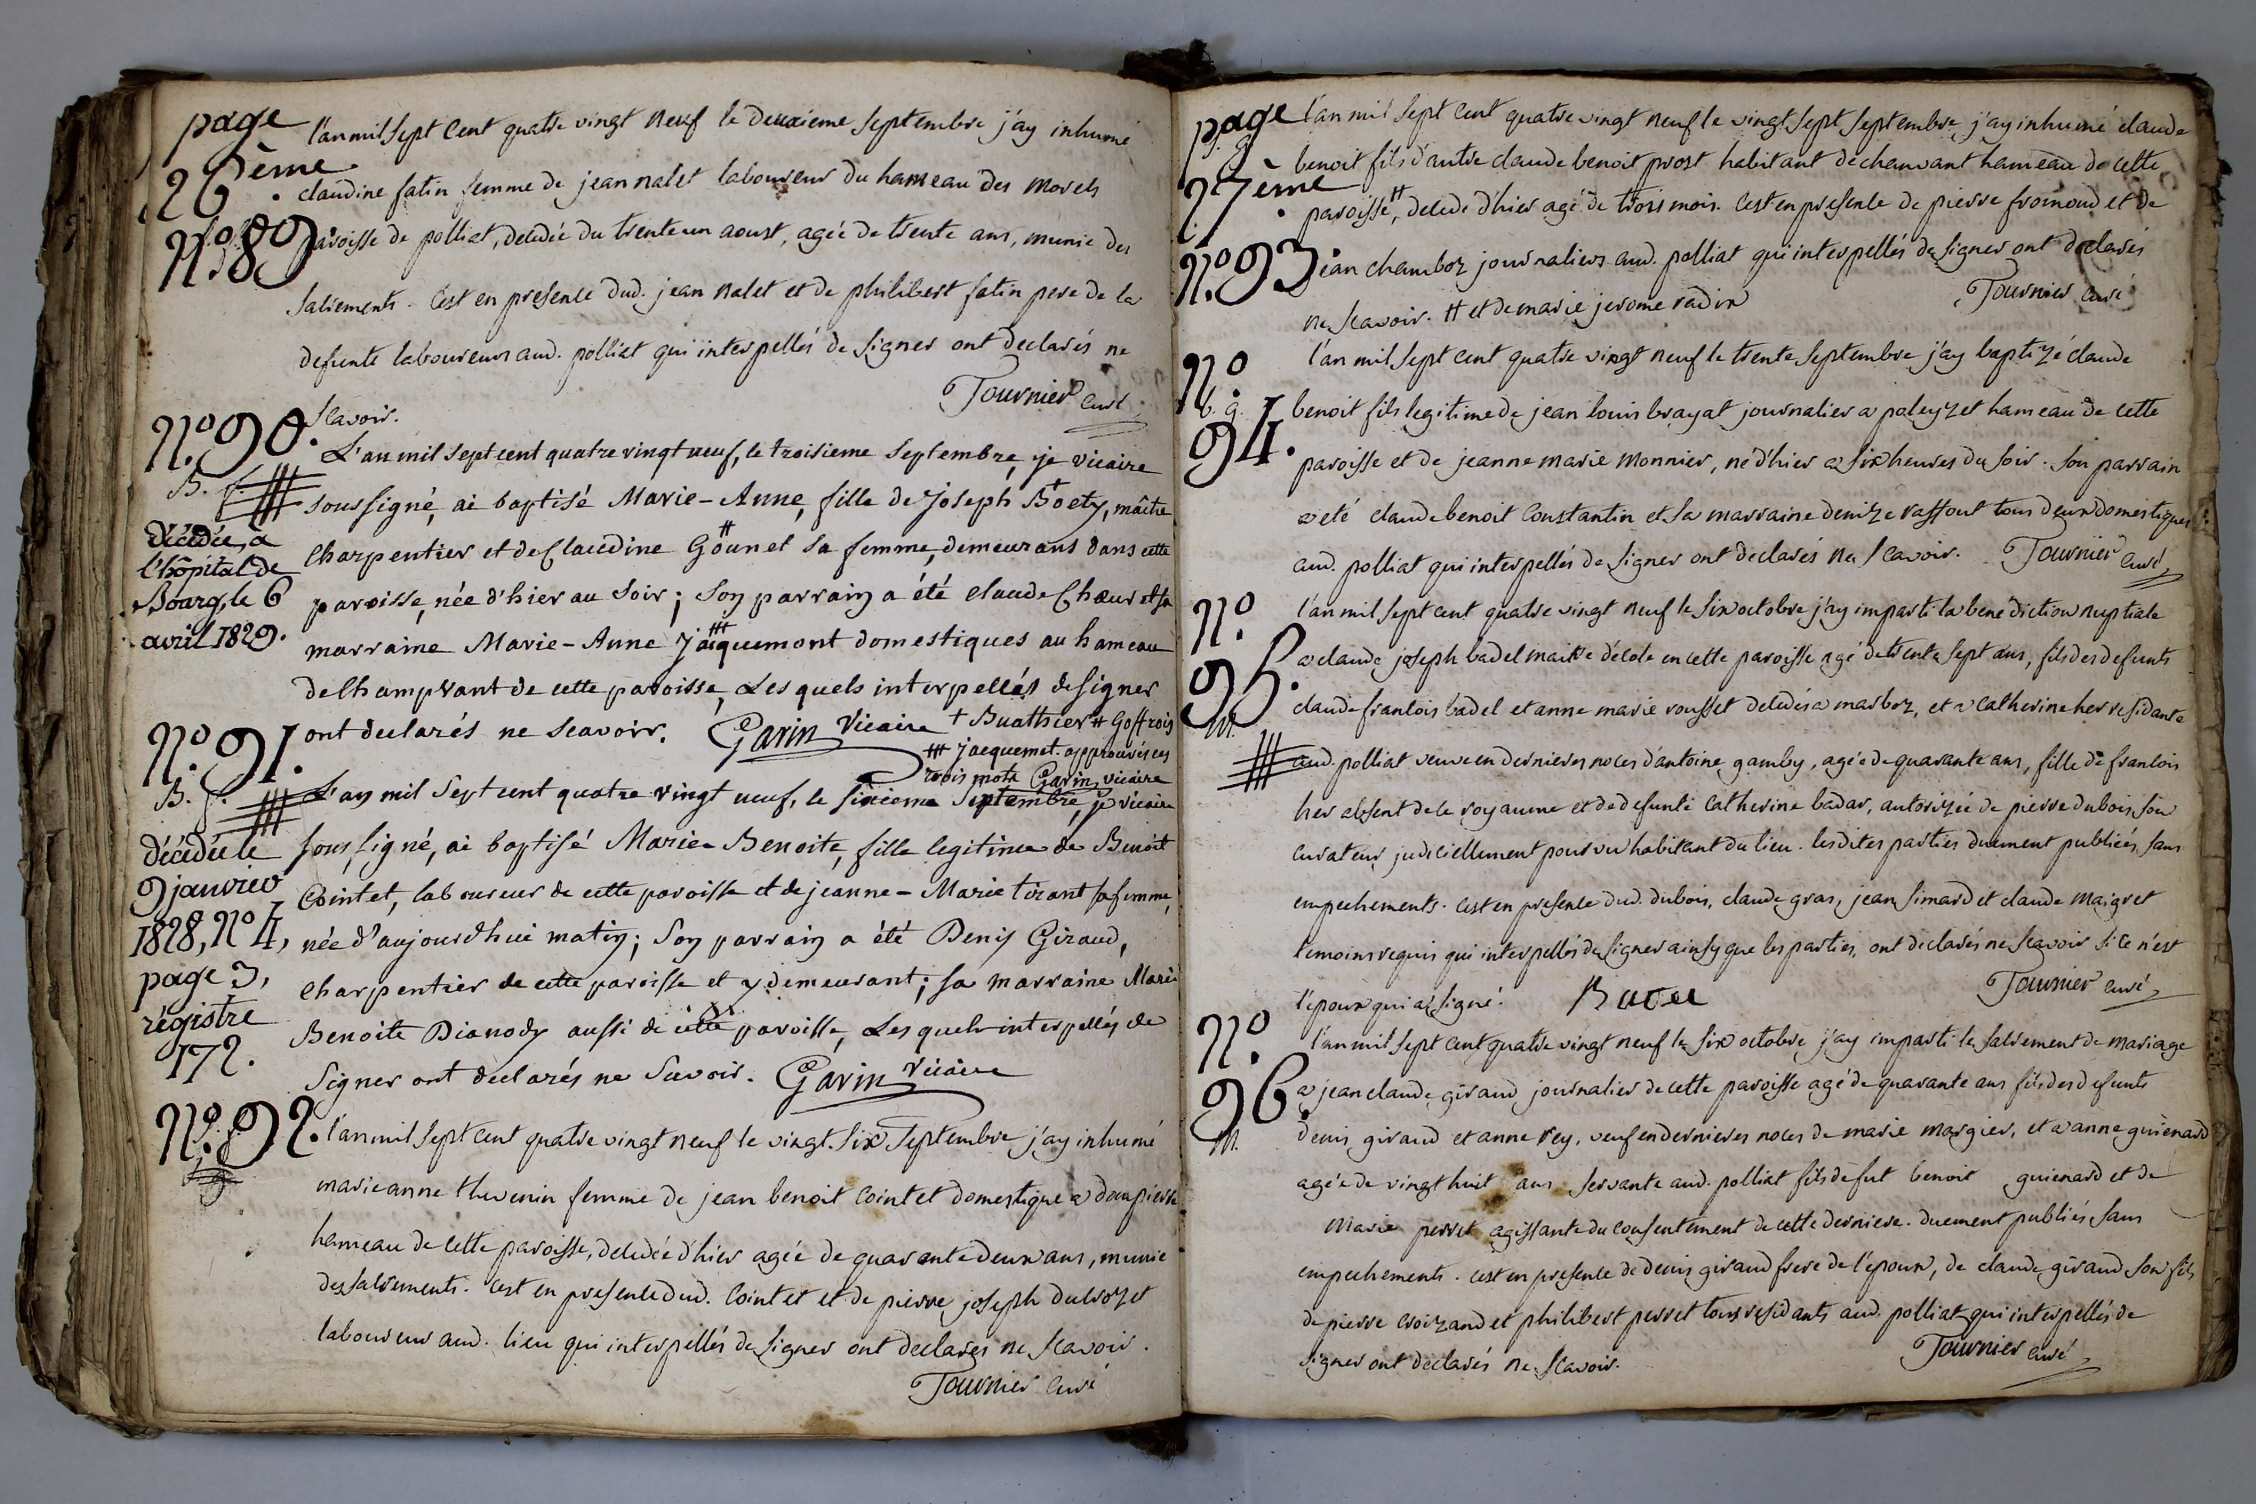 page
26ème.
n.o 89.
l'an mil sept cent quatre vingt neuf le deuxieme septembre j'ay inhumé
claudine fatin femme de jean nalet laboureur du hameau des morels
paroisse de polliat, decedée du trente un aoust, agée de trente ans, munie des
sacrements. C'est en presence dud. jean nalet et de philibert fatin pere de la
defunte laboureurs aud. polliat qui interpellés de signer ont declarés ne
scavoir.
Tournier curé
n.o 90.
B. f.
décédée, à
l'hôpital de
Bourg, le 6
avril 1829.
L'an mil sept cent quatre vingt neuf, le troisieme septembre, je vicaire
soussigné, ai baptisé Marie-Anne, fille de joseph Boety, + maître
charpentier et de Claudine Gounet # sa femme, demeurans dans cette
paroisse, née d'hier au soir; son parrain a été claude Chœur et sa
marraine Marie-Anne Jaiquemont domestiques au hameau
de Champvant de cette paroisse, Les quels interpellés de signer
ont declarés ne scavoir. Garin vicaire + Buathier # Goffrois
jacquemet. approuvés ces
trois mots Garin vicaire
n.o 91.
B. f.
décédée le
9 janvier
1828, N° 4,
page 3,
régistre
172.
L'an mil sept cent quatre vingt neuf, le sixieme septembre, je vicaire
soussigné, ai baptisé Marie-Benoite, fille legitime de Benoit
Cointet, laboureur de cette paroisse et de jeanne-Marie tirant sa femme,
née d'aujourd'hui matin; son parrain a été Denis Giraud,
charpentier de cette paroisse et y demeurant; sa marraine Marie
Benoite Dianody aussi de cette paroisse, Les quels interpellés de
signer ont declarés ne savoir. Garin vicaire
n.o 92.
l'an mil sept cent quatre vingt neuf le vingt six septembre j'ay inhumé
marie anne thevenin femme de jean benoit cointet domestique a dompierre
hameau de cette paroisse, decedée d'hier agée de quarante deux ans, munie
des sacrements. C'est en presence dud. cointet et de pierre joseph ducrozet
laboureur aud. lieu qui interpellés de signer ont declarés ne scavoir.
Tournier curé
page
27ème.
n.o 93.
l'an mil sept cent quatre vingt neuf le vingt sept septembre j'ay inhumé claude
benoit fils d'autre claude benoit prost habitant de chanvant hameau de cette
paroisse #, decedé d'hier agé de trois mois. C'est en presence de pierre fromond et de
jean chamboz journaliers aud. polliat qui interpellés de signer ont declarés
ne scavoir. # et de marie jerome radix
Tournier curé
n.o
b. g.
94.
l'an mil sept cent quatre vingt neuf le trente septembre j'ay baptizé claude
benoit fils legitime de jean louis brayat journalier a poleyzet hameau de cette
paroisse et de jeanne marie monnier, né d'hier a six heures du soir. son parrain
a été claude benoit constantin et sa marraine denize raffout tous deux domestiques
aud. polliat qui interpellés de signer ont declarés ne scavoir. Tournier curé
n.o
95.
m.
l'an mil sept cent quatre vingt neuf le six octobre j'ay imparti la benediction nuptiale
a claude joseph badel maitre d'école en cette paroisse agé de trente sept ans, fils des defunts
claude francois badel et anne marie rousset decedés a marboz, et a catherine her residante
aud. polliat veuve en dernieres noces d'antoine gamby, agée de quarante ans, fille de francois
her absent de le royaume et de defunte catherine badar, autorizée de pierre dubois son
curateur judiciellement pourvu habitant du lieu. lesdites parties duement publiées sans
empechements. C'est en presence dud. dubois, claude gras, jean simard et claude maigret
temoins requis qui interpellés de signer ainsy que les parties, ont declarés ne scavoir si ce n'est
l'epoux qui a signé. Badel Tournier curé
n.o
96.
m.
l'an mil sept cent quatre vingt neuf le six octobre j'ay imparti le sacrement de mariage
a jean claude giraud journalier de cette paroisse agé de quarante ans fils des defunts
denis giraud et anne rey, veuf en dernieres noces de marie margier, et a anne guienard
agée de vingt huit ans servante aud. polliat fils de fut benoit guienard et de
marie perret agissante du consentement de cette derniere. duement publiés sans
empechements. C'est en presence de denis giraud frere de l'époux, de claude giraud son fils
de pierre croizand et philibert perret tous residants aud. polliat qui interpellés de
signer ont declarés ne scavoir.
Tournier curé